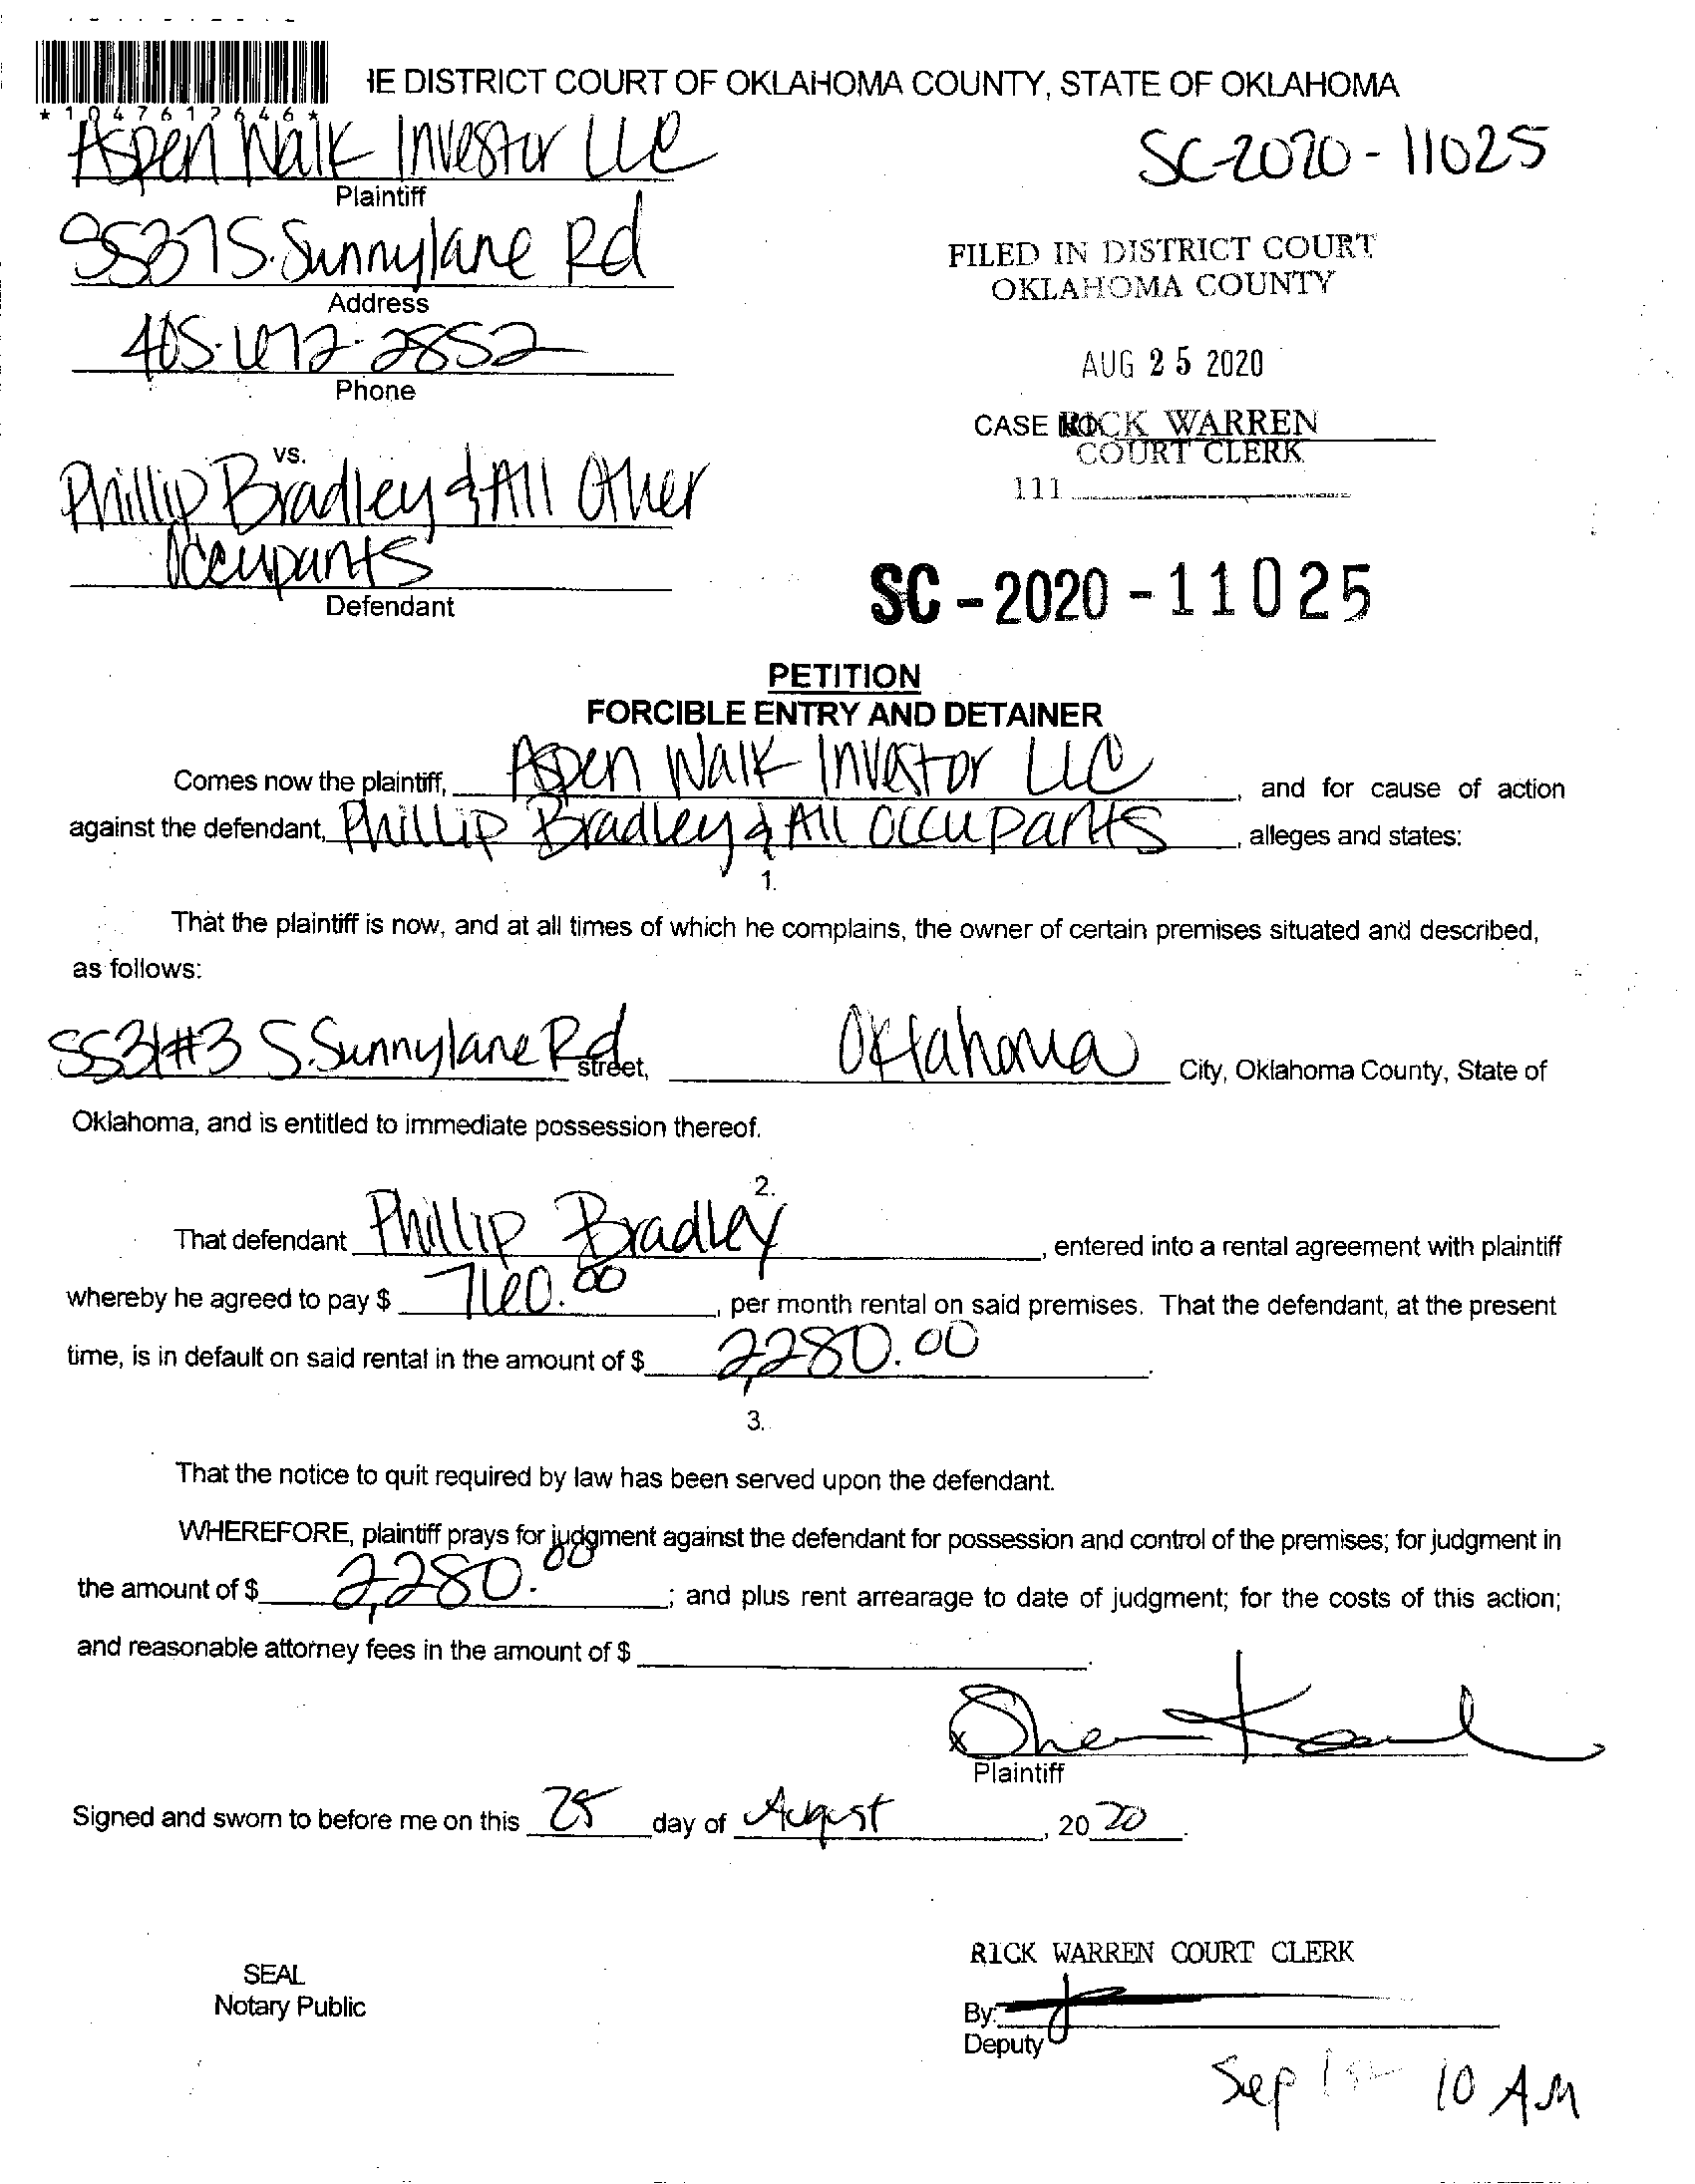 *1047617646*
HE DISTRICT COURT OF OKLAHOMA COUNTY, STATE OF OKLAHOMA
Aspen Walk Investor LLC
SC-2020-11025
Plaintiff
S. Sunnylane Rd
FILED IN DISTRICT COURT
OKLAHOMA COUNTY
Address
405-672-2852
AUG 25 2020
Phone
CASE NO. RICK WARREN
COURT CLERK
vs.
111
Phillip Bradley & All Other
Occupants
Defendant
SC-2020-11025
PETITION
FORCIBLE ENTRY AND DETAINER
Comes now the plaintiff, Aspen Walk Investor LLC, and for cause of action
against the defendant, Phillip Bradley & All Occupants, alleges and states:
1.
That the plaintiff is now, and at all times of which he complains, the owner of certain premises situated and described,
as follows:
5531#3 S. Sunnylane Rd street, Oklahoma City, Oklahoma County, State of
Oklahoma, and is entitled to immediate possession thereof.
2.
That defendant Phillip Bradley, entered into a rental agreement with plaintiff
whereby he agreed to pay $ 760.00, per month rental on said premises. That the defendant, at the present
time, is in default on said rental in the amount of $ 2,280.00.
3.
That the notice to quit required by law has been served upon the defendant.
WHEREFORE, plaintiff prays for judgment against the defendant for possession and control of the premises; for judgment in
the amount of $ 2,280.00; and plus rent arrearage to date of judgment; for the costs of this action;
and reasonable attorney fees in the amount of $ .
x
Plaintiff
Signed and sworn to before me on this 25 day of August, 2020.
RICK WARREN COURT CLERK
SEAL
Notary Public
By:
Deputy
Sep 10 AM